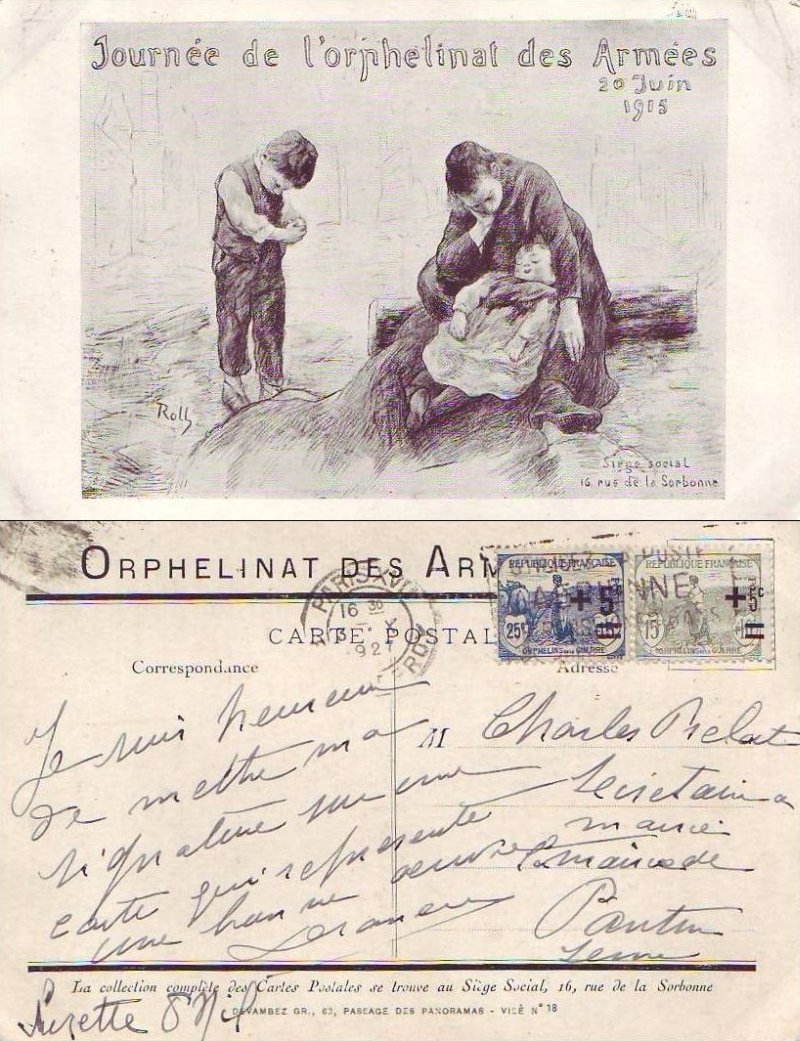 Journée de l'orphelinat des Armées
20 Juin
1915
Roll
Siège social
16 rue de la Sorbonne
ORPHELINAT DES ARM
PARIS XVII
16 30
5 - X
192
RÉPUBLIQUE FRANÇAISE
+5c
25c
ORPHELINS DE LA GUERRE
RÉPUBLIQUE FRANÇAISE
+5c
15c
ORPHELINS DE LA GUERRE
CARTE POSTAL
Correspondance
Adresse
Je suis heureuse
de mettre ma
signature sur une
carte qui représente
une bonne oeuvre
M Charles Prelat
Secrétaire à
mairie
la mairie de
Pantin
Seine
La collection complète des Cartes Postales se trouve au Siège Social, 16, rue de la Sorbonne
Suzette
DEVAMBEZ GR., 63, PASSAGE DES PANORAMAS - VISÉ N° 18